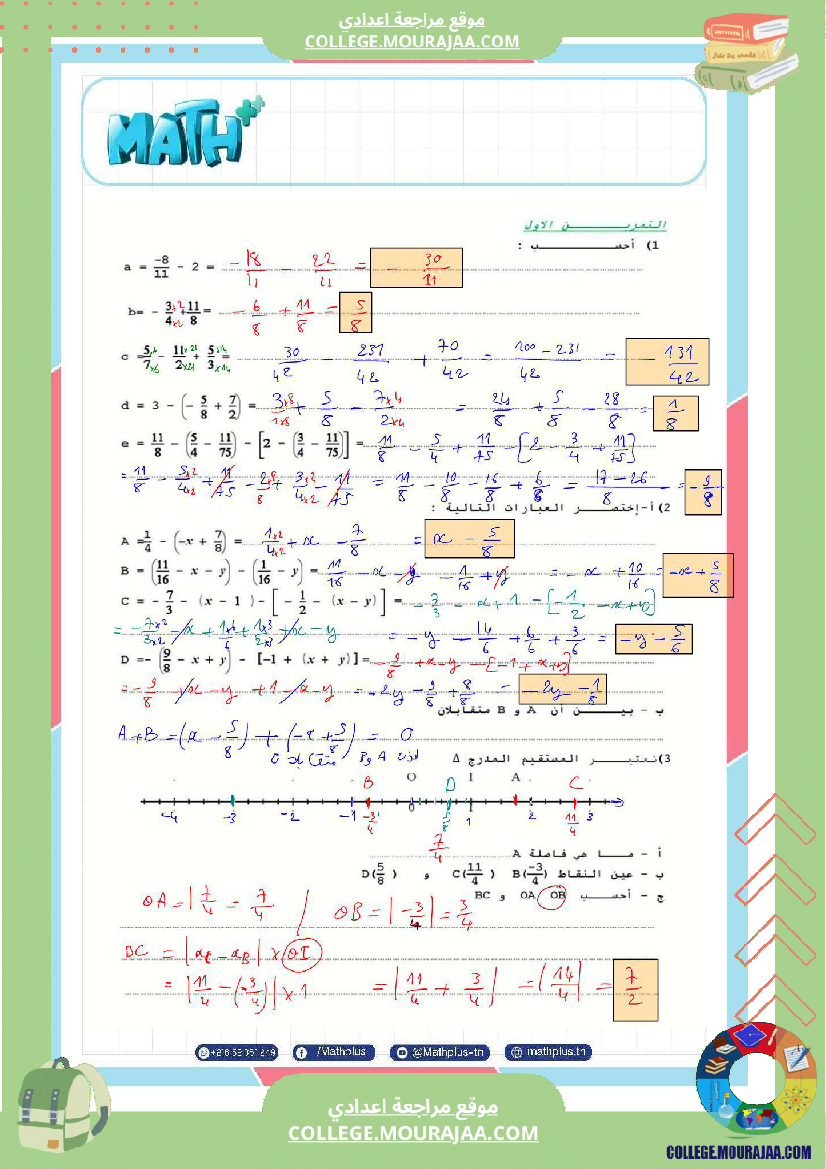 موقع مراجعة اعدادي
COLLEGE.MOURAJAA.COM
MATH++
التمريـــــن الاول
1) أحســـــــب :
a = -8/11 - 2 = - 18/11 - 22/11 = - 30/11
b= - 3×2/4×2 + 11/8 = - 6/8 + 11/8 = 5/8
c = 5×6/7×6 - 11×21/2×21 + 5×14/3×14 = 30/42 - 231/42 + 70/42 = 100-231/42 = - 131/42
d = 3 - (- 5/8 + 7/2) = 3×8/1×8 + 5/8 - 7×4/2×4 = 24/8 + 5/8 - 28/8 = 1/8
e = 11/8 - (5/4 - 11/75) - [2 - (3/4 - 11/75)] = 11/8 - 5/4 + 11/75 - [2 - 3/4 + 11/75]
= 11/8 - 5×2/4×2 + 11/75 - 2×8/8 + 3×2/4×2 - 11/75 = 11/8 - 10/8 - 16/8 + 6/8 = 17-26/8 = - 9/8
2) أ-إختصـــــر العبارات التالية :
A = 1/4 - (-x + 7/8) = 1×2/4×2 + x - 7/8 = x - 5/8
B = (11/16 - x - y) - (1/16 - y) = 11/16 - x - y - 1/16 + y = - x + 10/16 = - x + 5/8
C = - 7/3 - (x - 1) - [- 1/2 - (x - y)] = - 7/3 - x + 1 - [- 1/2 - x + y]
= - 7×2/3×2 - x + 1×6/6 + 1×3/2×3 + x - y = - y - 14/6 + 6/6 + 3/6 = - y - 5/6
D = - (9/8 - x + y) - [-1 + (x + y)] = - 9/8 + x - y - [-1 + x + y]
= - 9/8 + x - y + 1 - x - y = - 2y - 9/8 + 8/8 = - 2y - 1/8
ب - بيـــــن أن A و B متقابلان
A + B = (x - 5/8) + (- x + 5/8) = 0
إذن A و B متقابلان
3) نعتبـــــر المستقيم المدرج Δ
B O D I A C
-4 -3 -2 -1 -3/4 0 5/8 1 2 11/4 3
أ - مـــا هي فاصلة A 7/4
ب - عين النقاط B(-3/4) C(11/4) و D(5/8)
ج - أحســـب OB OA و BC
OA = |7/4| = 7/4 / OB = |-3/4| = 3/4
BC = |xC - xB| × OI
= |11/4 - (-3/4)| × 1 = |11/4 + 3/4| = |14/4| = 7/2
/Mathplus
@Mathplus-tn
mathplus.tn
موقع مراجعة اعدادي
COLLEGE.MOURAJAA.COM
COLLEGE.MOURAJAA.COM